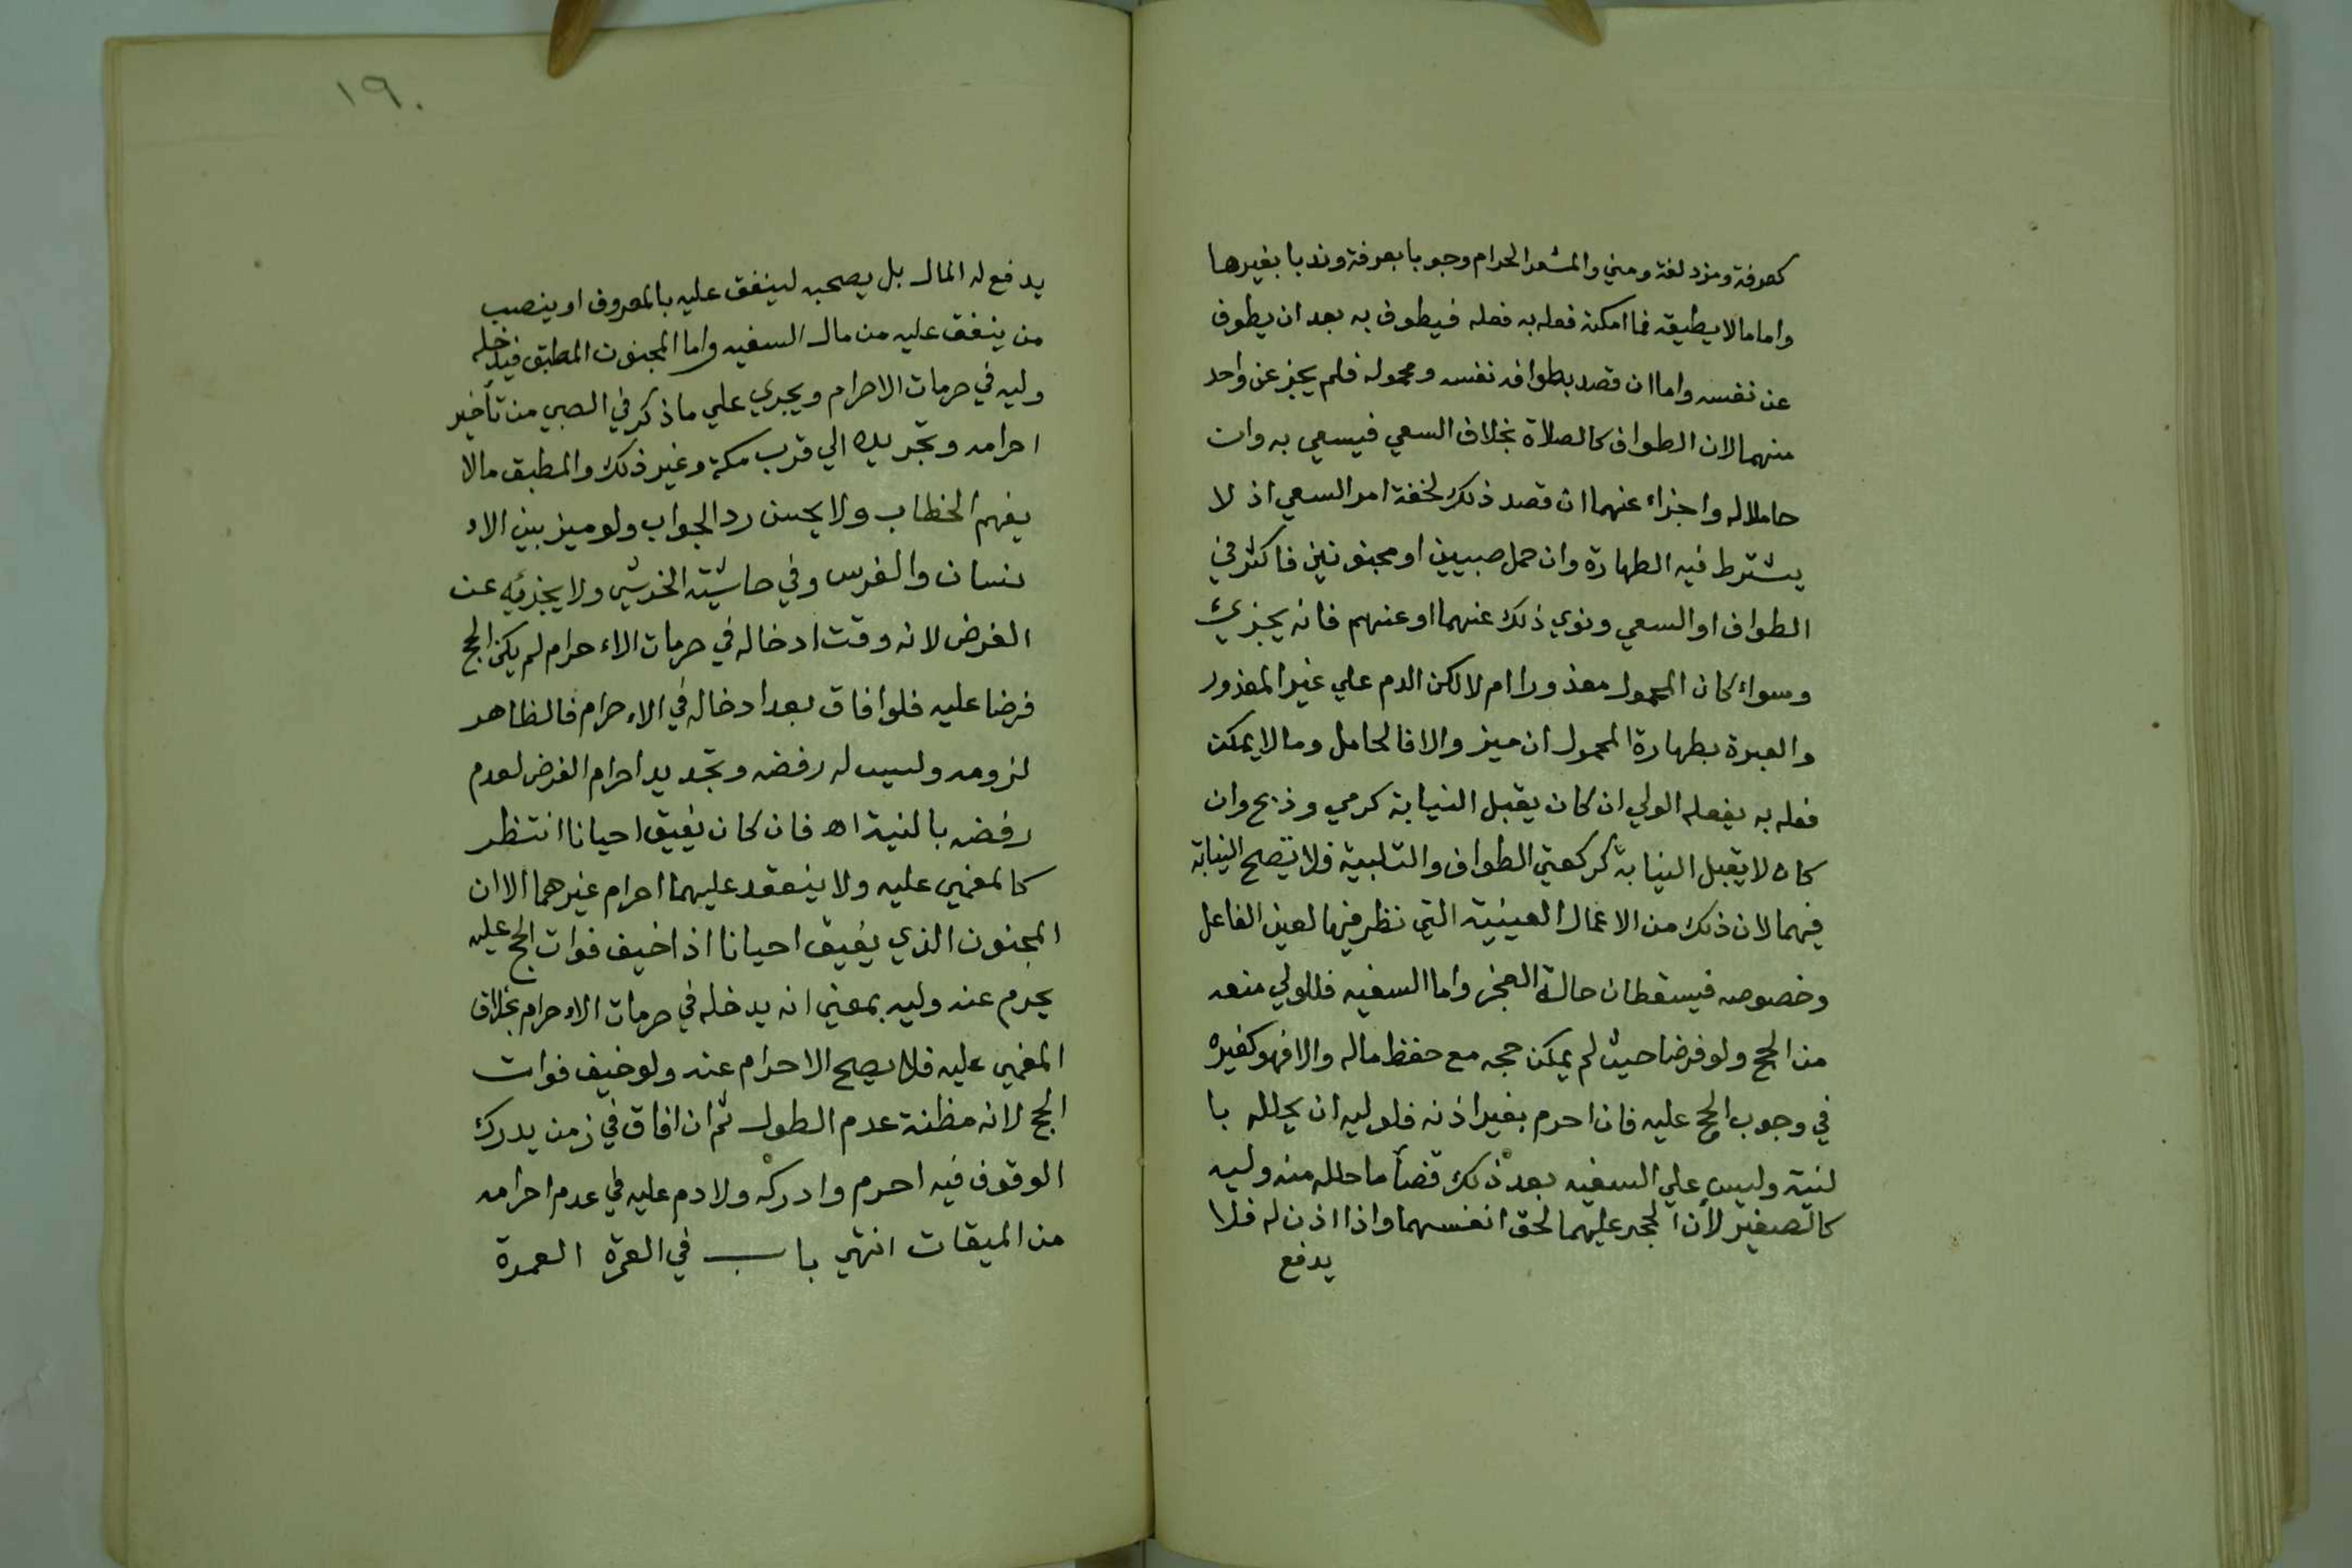 كعرفة ومزدلفة ومني والمشعر الحرام وجوبا بعرفة وندبا بغيرها
واما مالا يطيقه فما امكنه فعله به فعله فيطوف به بعد ان يطوف
عن نفسه واما ان قصد بطوافه نفسه ومحموله فلم يجز عن واحد
منهما لان الطواف كالصلاة بخلاف السعي فيسعي به وان
حاملا له واجزاء عنهما ان قصد ذلك لخفة امر السعي اذ لا
يشترط فيه الطهارة وان حمل صبيين او مجنونين فاكثر في
الطواف او السعي ونوي ذلك عنهما او عنهم فانه يجزئ
وسواء كان المحمول معذورا ام لا لكن الدم علي غير المعذور
والعبرة بطهارة المحمول ان ميز والا فالحامل ومالا يمكن
فعله به يفعله الولي ان كان يقبل النيابة كرمي وذبح وان
كان لا يقبل النيابة كركعتي الطواف والتلبية فلا تصح النيابة
فيهما لان ذلك من الاعمال العينية التي نظر فيها لعين الفاعل
وخصوصه فيسقطان حالة العجز واما السفيه فللولي منعه
من الحج ولو فرضا حيث لم يمكن حجه مع حفظ ماله والا فهو كغيره
في وجوب الحج عليه فان احرم بغير اذنه فلوليه ان يحلله با
لنية وليس علي السفيه بعد ذلك قضأ ما حلله منه وليه
كالصغير لأن الحجر عليهما لحق انفسهما واذا اذن له فلا
يدفع
١٩٠
يدفع له المال بل يصحبه لينفق عليه بالمعروف او ينصب
من ينفق عليه من مال السفيه واما المجنون المطبق فيدخله
وليه في حرمات الاحرام ويجري علي ما ذكر في الصبي من تأخير
احرامه وتجريده الي قرب مكة وغير ذلك والمطبق مالا
يفهم الخطاب ولا يحسن رد الجواب ولو ميز بين الاء
نسان والفرس وفي حاشيته الخرشي ولا يجزئه عن
الفرض لانه وقت ادخاله في حرمات الاء حرام لم يكن الحج
فرضا عليه فلو افاق بعد ادخاله في الاء حرام فالظاهر
لزومه وليس له رفضه وتجديد احرام الفرض لعدم
رفضه بالنية اه فان كان يفيق احيانا انتظر
كالمغمي عليه ولا ينعقد عليهما احرام غيرهما الا ان
المجنون الذي يفيق احيانا اذا خيف فوات الحج عليه
يحرم عنه وليه بمعني انه يدخله في حرمات الاء حرام بخلاف
المغمي عليه فلا يصح الاحرام عنه ولو خيف فوات
الحج لانه مظنة عدم الطول ثم ان افاق في زمن يدرك
الوقوف فيه احرم وادركه ولا دم عليه في عدم احرامه
من الميقات انتهي باب في العمرة العمرة